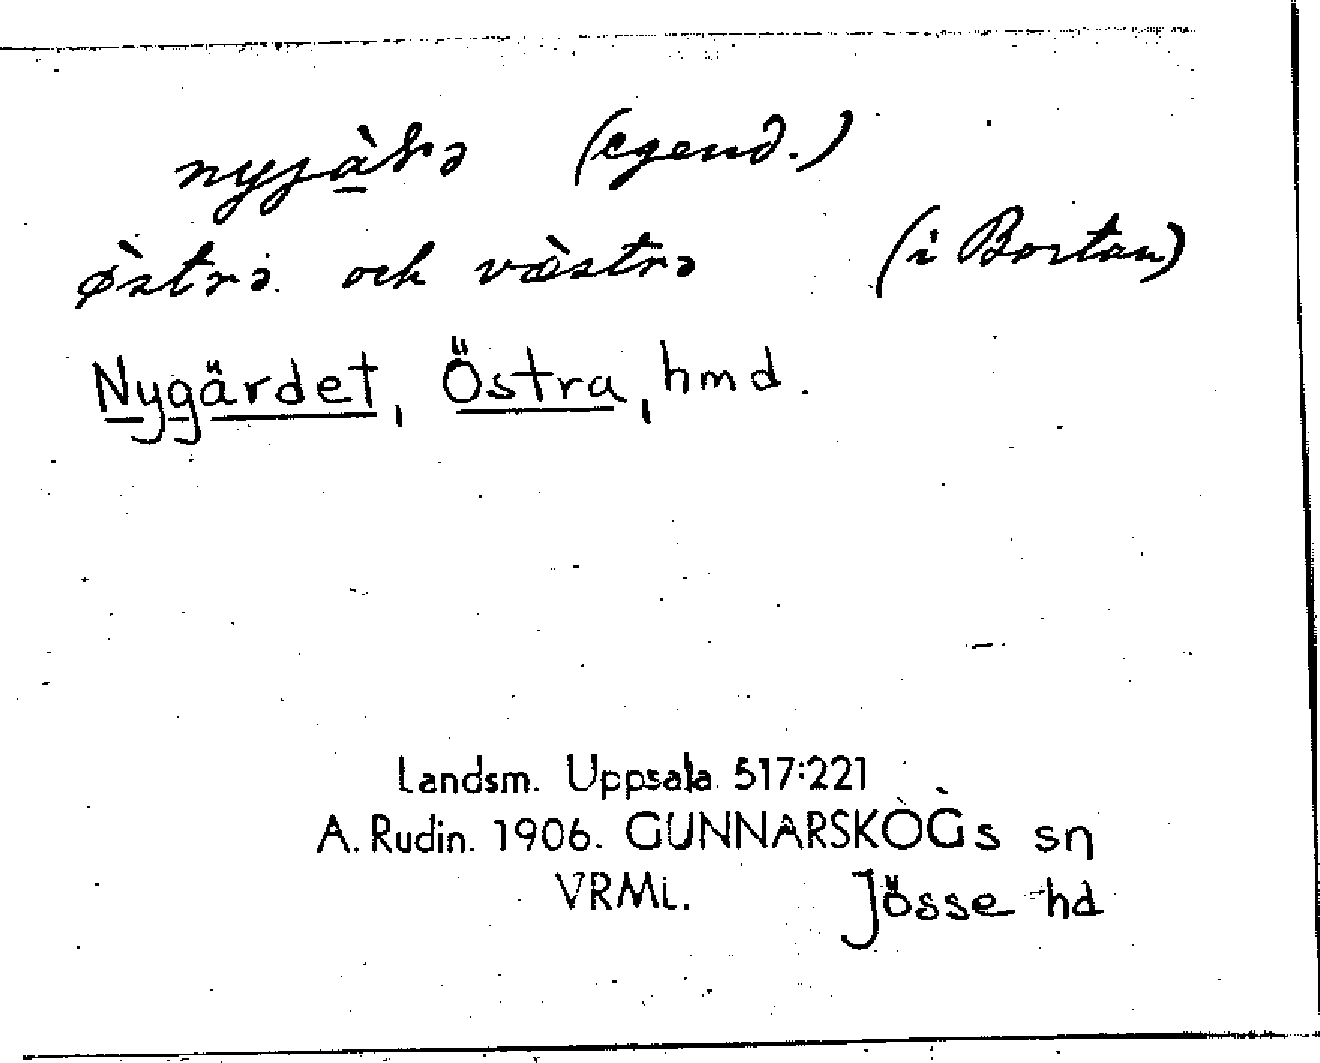 (egend.)
østrə och væ̀strə (i Bortan)
Nygärdet, Östra, hmd.
Landsm. Uppsala 517:221
A. Rudin. 1906. GUNNARSKOGs sn
VRMl. Jösse hd